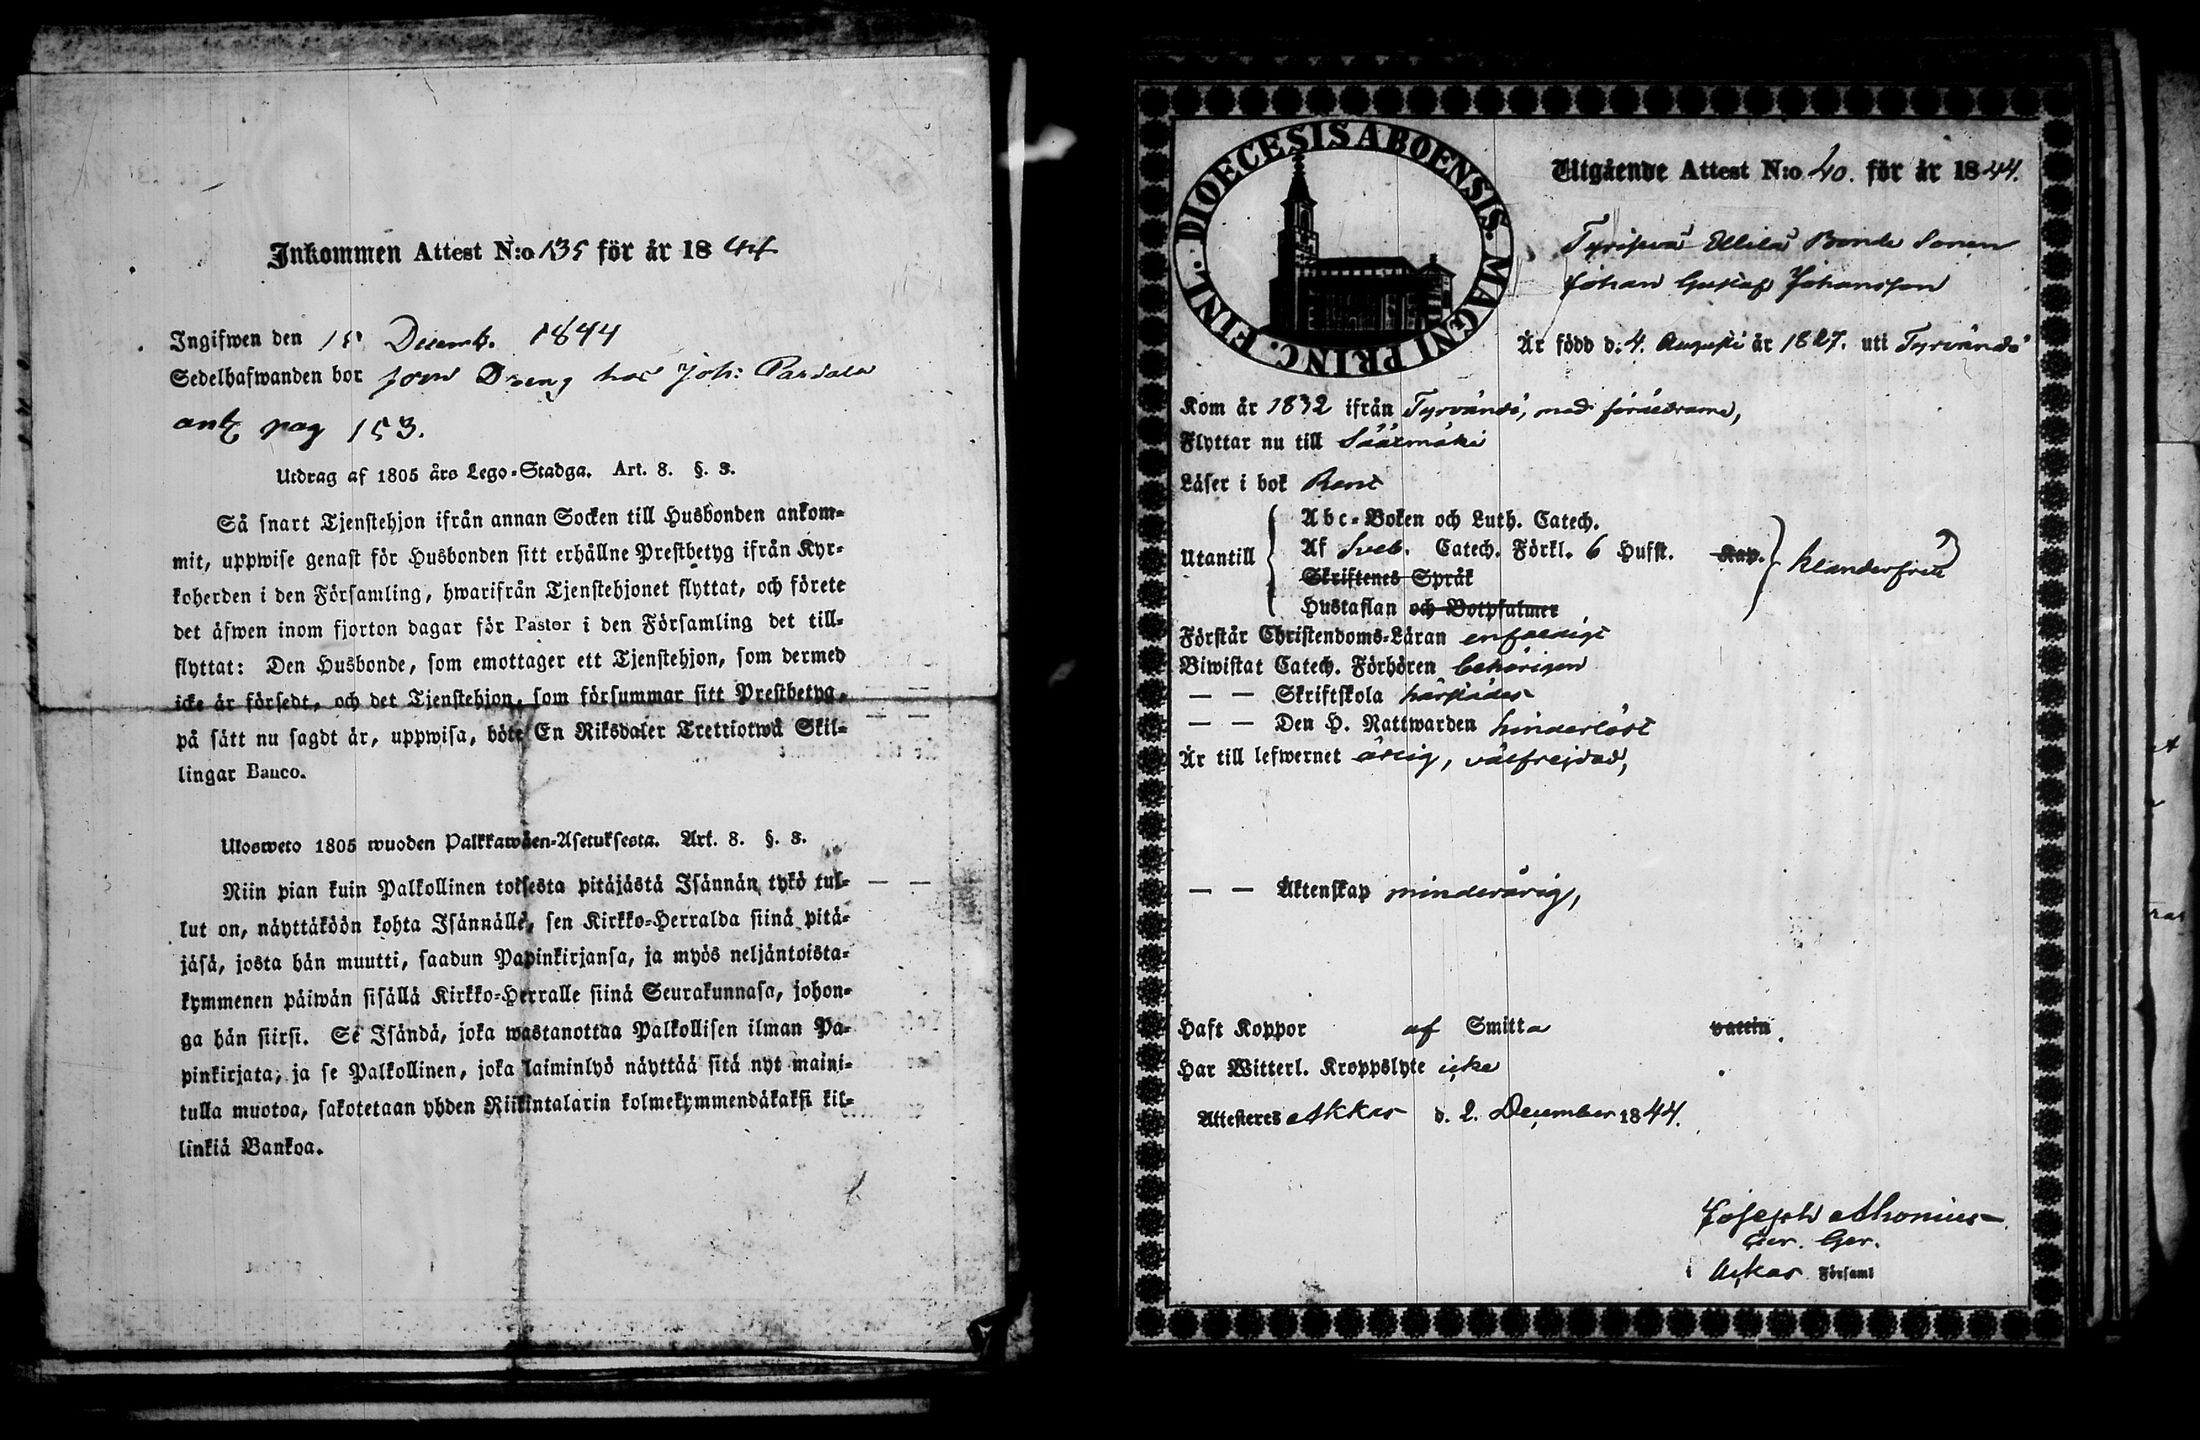 Inkommen Attest N:o 135 för år 1844
Ingifwen den 18 Decemb. 1844
Sedelhafwanden bor som Dreng hos Joh:
pag 153.
Utdrag af 1805 års Lego-Stadga. Art. 8. §. 3.
Så snart Tjenstehjon ifrån annan Socken till Husbonden ankom-
mit, uppwise genast för Husbonden sitt erhållne Prestbetyg ifrån Kyr-
koherden i den Församling, hwarifrån Tjenstehjonet flyttat, och förete
det äfwen inom fjorton dagar för Pastor i den Församling det till-
flyttat: Den Husbonde, som emottager ett Tjenstehjon, som dermed
icke är försedt, och det Tjenstehjon, som försummar sitt Prestbetyg,
på sätt nu sagdt är, uppwisa, böte En Riksdaler Trettiotwå Skil-
lingar Banco.
Ulosweto 1805 wuoden Palkkawäen-Asetuksesta. Art. 8. §. 3.
Niin pian kuin Palkollinen toisesta pitäjästä Isännän tykö tul-
lut on, näyttäköön kohta Isännälle, sen Kirkko-Herralda siinä pitä-
jäsä, josta hän muutti, saadun Papinkirjansa, ja myös neljäntoista-
kymmenen päiwän sisällä Kirkko-Herralle siinä Seurakunnasa, johon-
ga hän siirsi. Se Isändä, joka wastanottaa Palkollisen ilman Pa-
pinkirjata, ja se Palkollinen, joka laiminlyö näyttää sitä nyt maini-
tulla muotoa, sakotetaan yhden Riikintalarin kolmekymmendäkaksi kil-
linkiä Bankoa.
DIOECESIS ABOENSIS. MAGNI PRINC. FINL.
Utgående Attest N:o 40. för år 1844.
Bonde Sonen
Johan Gustaf Johansson
Är född d. 4. Augusti år 1827. uti Tyrvändö
Kom år 1832 ifrån Tyrvändö, med föräldrarne,
Flyttar nu till Sääxmäki
Läser i bok Rent
Utantill
Abc-Boken och Luth. Catech.
Af Sveb. Catech. Förkl. 6 Hufst. Kap.
Skriftenes Språk
Hustaflan och Botpsalmer
klanderfritt
Förstår Christendoms-Läran enfaldigt
Biwistat Catech. Förhören behörigen
— — Skriftskola härstädes
— — Den H. Nattwarden hinderlöst
Är till lefwernet ärlig, välfrejdad,
— — Äktenskap minderårig,
Haft Koppor af Smitta vaccin.
Har Witterl. Kroppslyte icke
Attesteras Akkas d. 2. December 1844.
Joseph
Akkas Församl